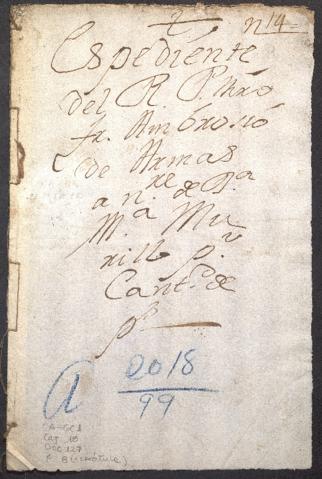 nº 14
Espediente
del R. P. Mro
fr. Ambrosio
de Armas
a nre. de Da.
Ma. Mu
rillo pr.
Cantd. de
ps.
A 2018
99
CA-GC1
Cap 10
Doc 127
f. 8 (rótulo)